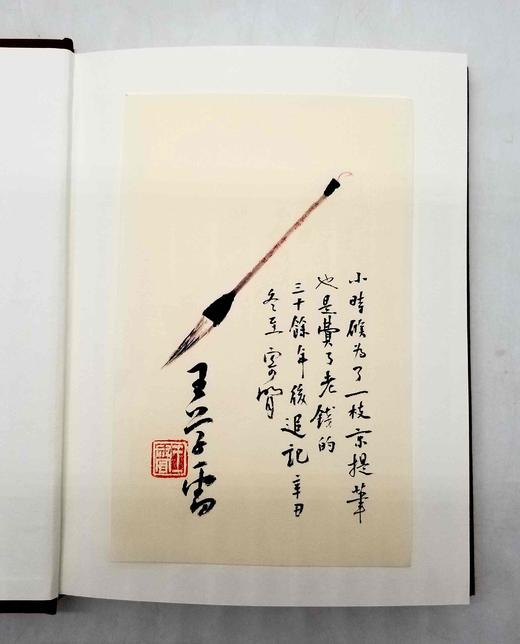 小時候为了一枝京提筆
也是費了老錢的
三十餘年後追記 辛丑
冬至 雪閒
王学雷